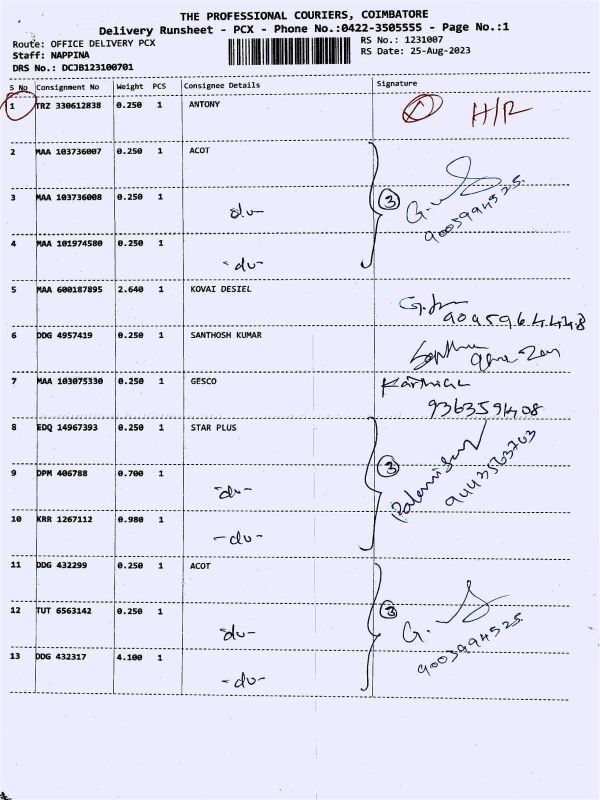 THE PROFESSIONAL COURIERS, COIMBATORE
Delivery Runsheet - PCX - Phone No.:0422-3505555 - Page No.:1
Route: OFFICE DELIVERY PCX
RS No.: 1231007
Staff: NAPPINA
RS Date: 25-Aug-2023
DRS No.: DC3B123100701
S No Consignment No Weight PCS Consignee Details Signature
1 TRZ 330612838 0.250 1 ANTONY H/R
2 MAA 103736007 0.250 1 ACOT
3 MAA 103736008 0.250 1 -du- 3 G.
4 MAA 101974580 0.250 1 -du-
5 MAA 600187895 2.640 1 KOVAI DESIEL
6 DDG 4957419 0.250 1 SANTHOSH KUMAR
7 MAA 103075330 0.250 1 GESCO Karthick
8 EDQ 14967393 0.250 1 STAR PLUS
9 DPM 406788 0.700 1 -du- 3
9443563763
10 KRR 1267112 0.980 1 -du-
11 DDG 432299 0.250 1 ACOT
12 TUT 6563142 0.250 1 -du- 3 G.
13 DDG 432317 4.100 1 -du-